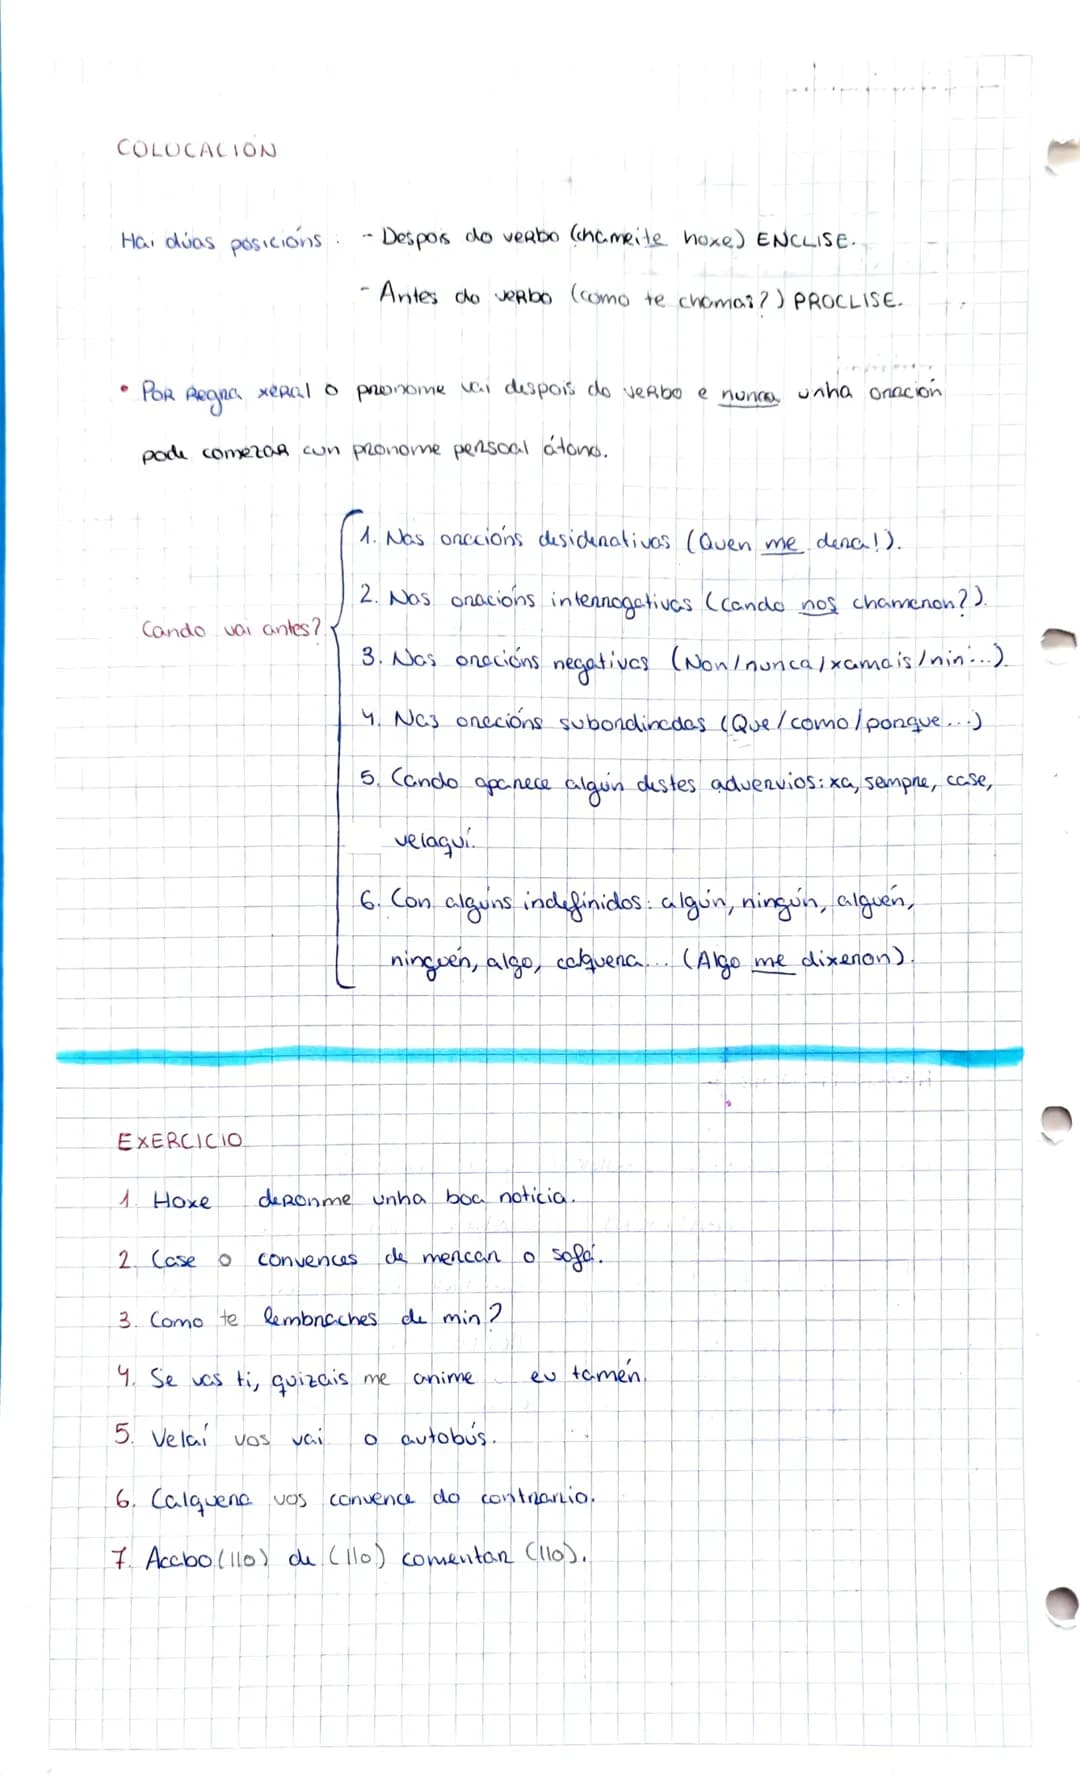 COLOCACIÓN
Hai dúas posicións: - Despois do verbo (chameite hoxe) ENCLISE.
- Antes do verbo (como te chamas?) PROCLISE.
• Por Regra xeral o pronome vai despois do verbo e nunca unha oración
pode comezar cun pronome persoal átono.
Cando vai antes?
1. Nas oracións desiderativas (Quen me dera!).
2. Nas oracións interrogativas (Cando nos chamaron?).
3. Nas oracións negativas (Non/nunca/xamais/nin...).
4. Nas oracións subordinadas (Que/como/porque...)
5. Cando aparece algún destes advervios: xa, sempre, case,
velaquí.
6. Con algúns indefinidos: algún, ningún, alguén,
ninguén, algo, calquera... (Algo me dixeron).
EXERCICIO
1. Hoxe deronme unha boa noticia.
2. Case o convences de mercar o sofá.
3. Como te lembraches de min?
4. Se vas ti, quizais me anime eu tamén.
5. Velaí vos vai o autobús.
6. Calquera vos convence do contrario.
7. Acabo (llo) de (llo) comentar (llo).